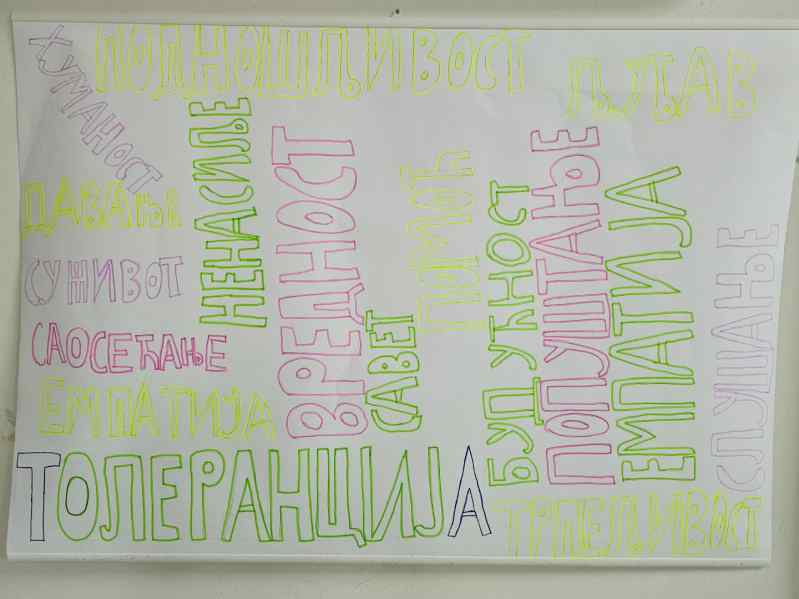 ХУМАНОСТ
ПОДНОШЉИВОСТ
ЉУБАВ
НЕНАСИЉЕ
ВРЕДНОСТ
ПОМОЋ
БУДУЋНОСТ
ПОПУШТАЊЕ
ЕМПАТИЈА
СЛУШАЊЕ
ДАВАЊЕ
СУЖИВОТ
САОСЕЋАЊЕ
САВЕТ
ЕМПАТИЈА
ТОЛЕРАНЦИЈА
ТРПЕЉИВОСТ